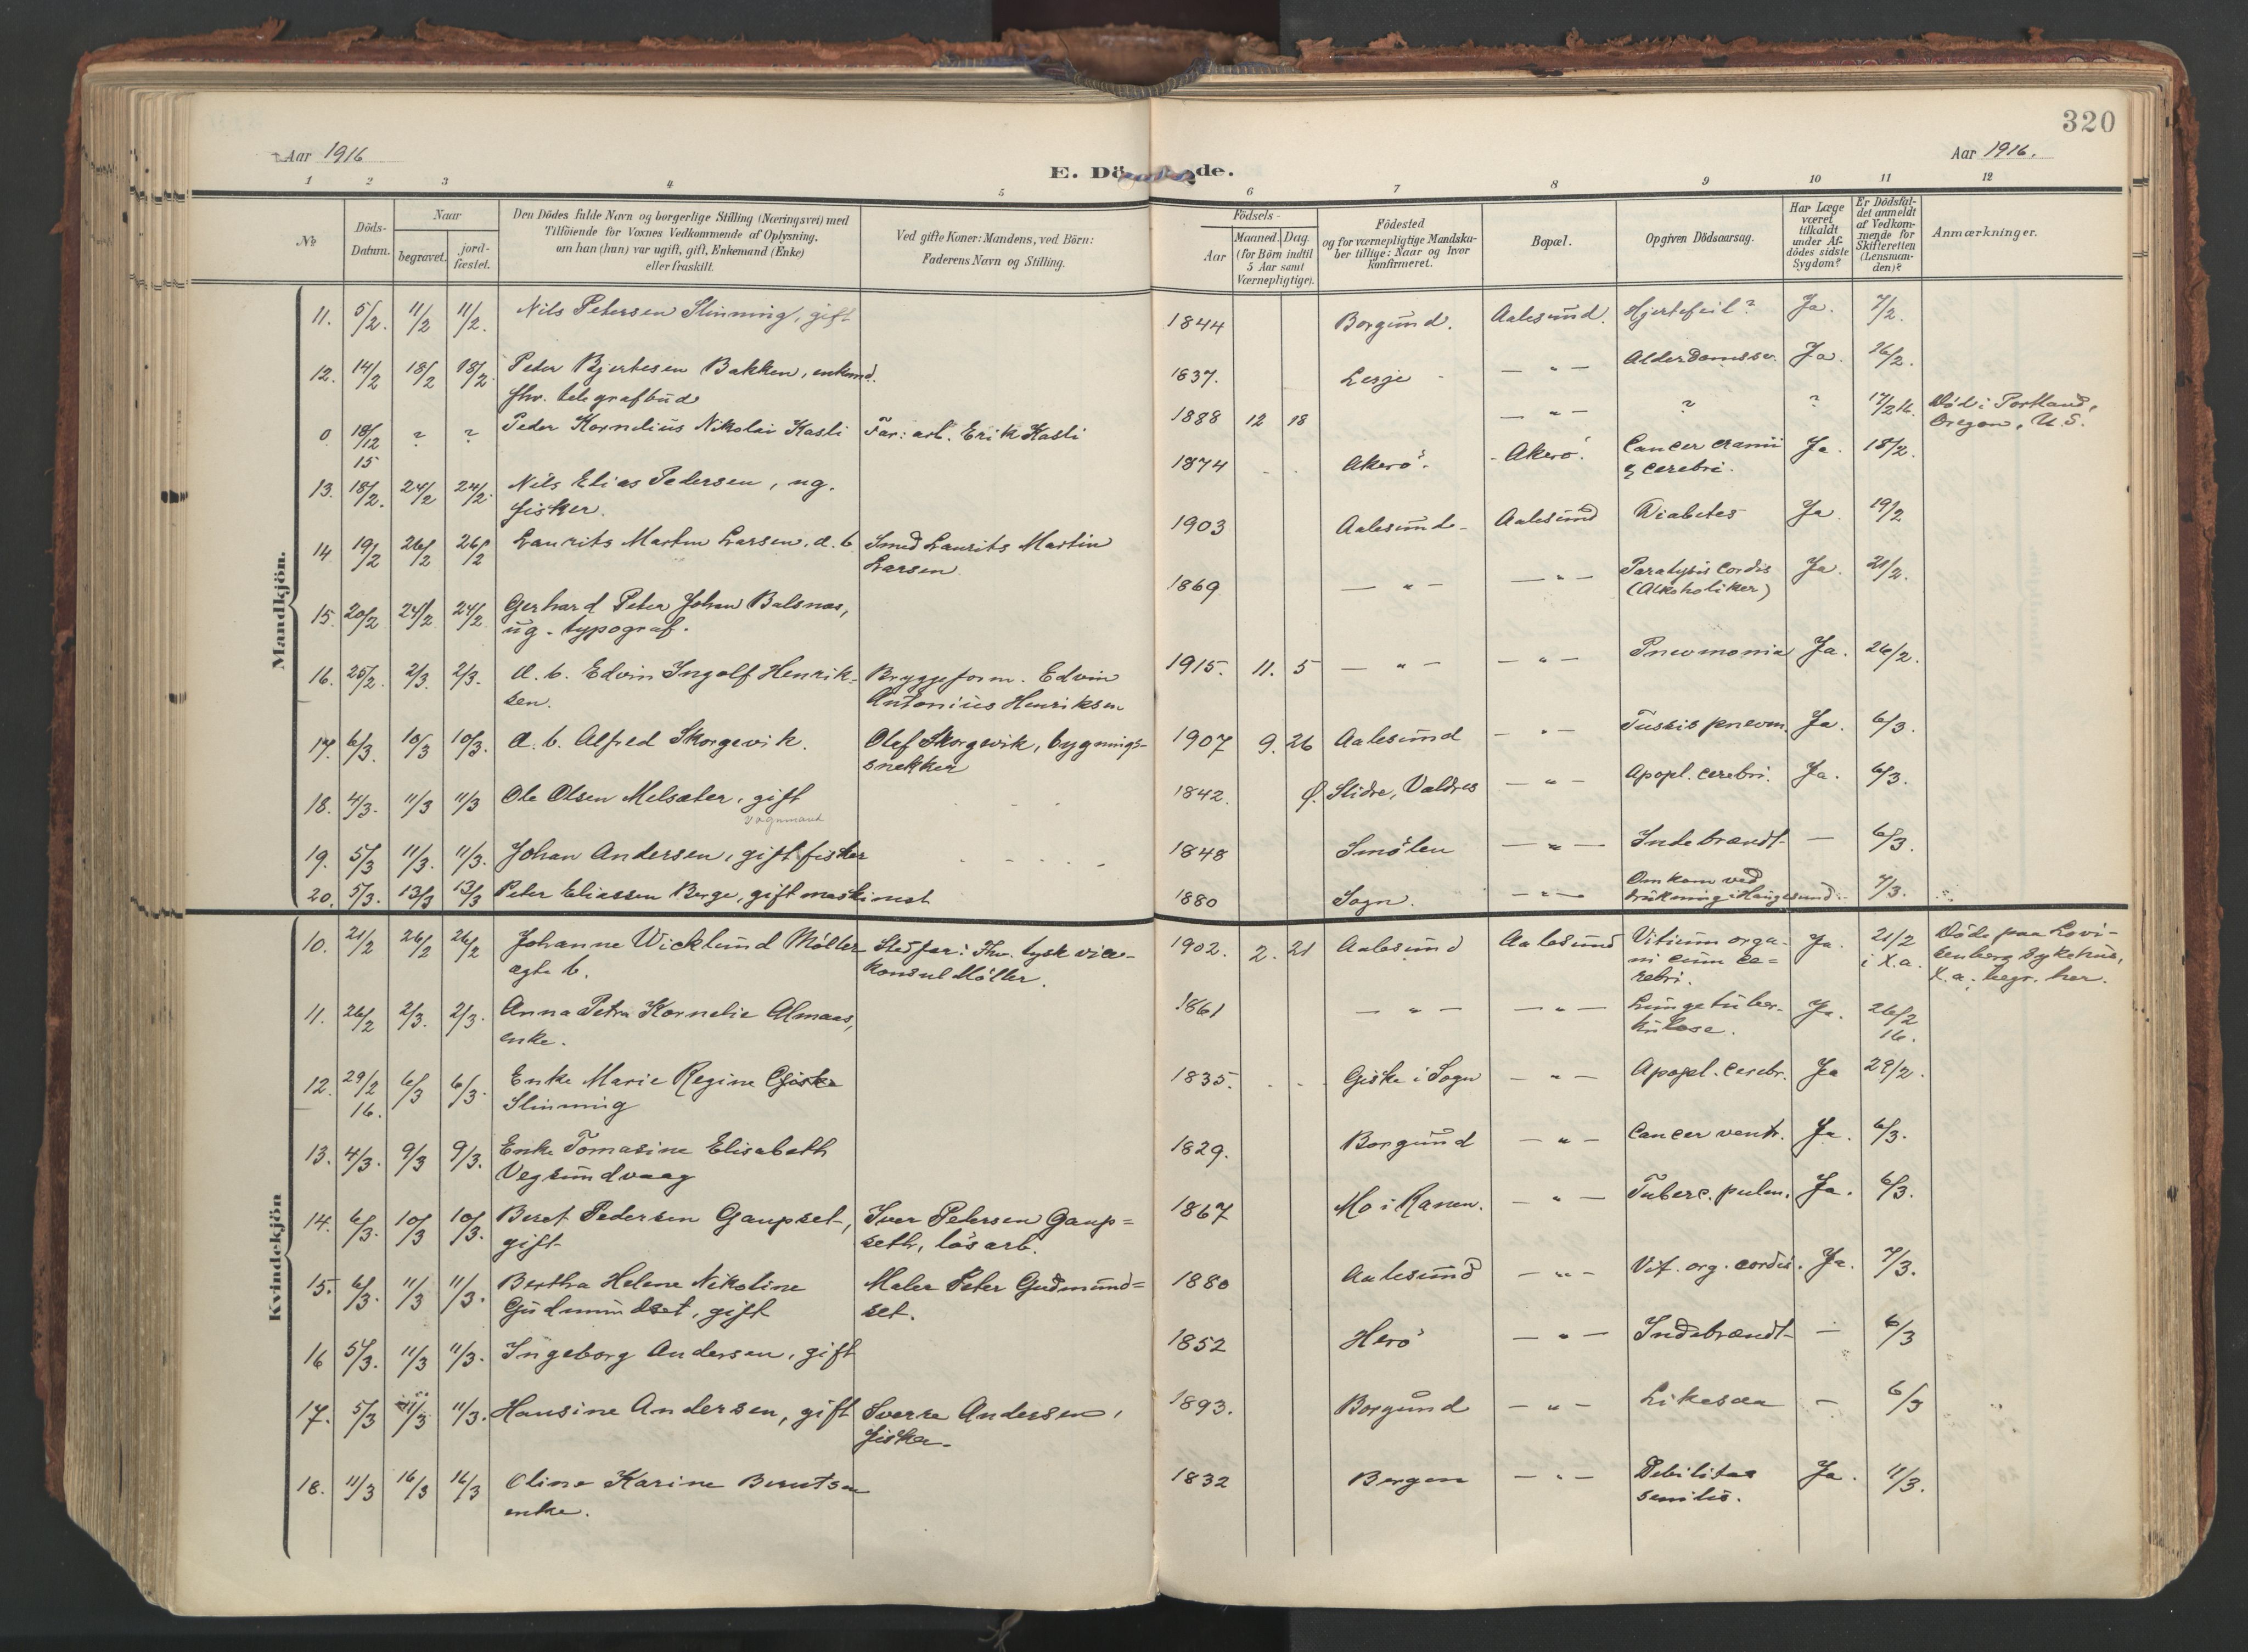 320
Aar 1916
Aar 1916.
E. Dö de.
1 2 3 4 5 6 7 8 9 10 11 12
№
Döds-
Datum.
Naar
begravet.
jord-
fæstet.
Den Dödes fulde Navn og borgerlige Stilling (Næringsvei) med
Tilföiende for Voxnes Vedkommende af Oplysning,
om han (hun) var ugift, gift, Enkemand (Enke)
eller fraskilt.
Ved gifte Koner: Mandens, ved Börn:
Faderens Navn og Stilling.
Födsels-
Aar
Maaned. Dag.
(for Börn indtil
5 Aar samt
Værnepligtige).
Födested
og for værnepligtige Mandska-
ber tillige: Naar og hvor
konfirmeret.
Bopæl.
Opgiven Dödsaarsag.
Har Læge
været
tilkaldt
under Af-
dödes sidste
Sygdom?
Er Dödsfal-
det anmeldt
af Vedkom-
mende for
Skifteretten
(Lensman-
den)?
Anmærkninger.
Mandkjön.
11. 5/2. 11/2 11/2. Nils Petersen Slinning, gift 1844 Borgund. Aalesund. Hjertefeil? Ja. 7/2.
12. 14/2 18/2 18/2. Peter Bjertesen Bakken, enkemd. 1837. Lesje — " — Alderdomssv. Ja. 26/2.
fhv. telegrafbud
0 18/12 ? ? Peder Kornelius Nikolai Kasli Far: arb. Erik Kasli 1888 12 18 — " — ? ? 17/2 16. Död i Portland,
15 Oregon, U.S.
13. 18/2. 24/2 24/2. Nils Elias Pedersen, ug. 1874 Akerö. Akerö. Cancer cranii Ja. 18/2.
fisker. & cerebri.
14 19/2 26/2 26/2 Laurits Martin Larsen, a. b. Smed Laurits Martin 1903 Aalesund Aalesund Diabetes Ja 19/2
Larsen
15. 20/2 24/2 24/2 Gerhard Peter Johan Balsnes, 1869 — " — — " — Paralysis cordis Ja. 21/2.
ug. typograf. (Alkoholiker)
16. 25/2. 2/3. 2/3. A. b. Edvin Ingolf Henrik- Bryggeform. Edvin 1915. 11. 5 — " — — " — Pneumonia Ja. 26/2.
sen. Antonius Henriksen
17. 6/3. 10/3 10/3. A. b. Alfred Skorgevik. Olaf Skorgevik, bygnings- 1907 9. 26 Aalesund — " — Tussis pneum. Ja. 6/3.
snekker
18. 4/3. 11/3 11/3 Ole Olsen Melsæter, gift 1842. Ø. Slidre, Valdres — " — Apopl. cerebri. Ja. 6/3.
vognmand
19. 5/3 11/3. 11/3. Johan Andersen, gift fisker 1848 Smölen — " — Indebrændt — 6/3.
20. 5/3. 13/3 13/3 Peter Eliassen Berge, gift maskinist 1880 Sogn. — " — Omkom ved 7/3.
drukning i Haugesund.
Kvindekjön
10. 21/2 26/2 26/2 Johanne Wicklund Möller Stedfar: Fhv. tysk vice- 1902. 2. 21 Aalesund Aalesund Vitium orga- Ja. 21/2 Döde paa Lovi-
ægte b. konsul Möller. ni cum ce= i X.a. senberg sykehus,
rebri. X.a., begr. her.
11. 26/2 2/3. 2/3. Anna Petra Kornelie Almaas, 1861 — " — — " — Lungetuber- Ja. 26/2
enke. kulose. 16.
12. 29/2 6/3 6/3. Enke Marie Regine Giske 1835. Giske i Sogn — " — Apopl. cerebr. Ja 29/2.
16. Slinning
13. 4/3. 9/3 9/3. Enke Tomasine Elisabeth 1829. Borgund — " — Cancer ventr. Ja. 6/3.
Vegsundvaag
14. 6/3. 10/3 10/3. Beret Pedersen Gaupset, Iver Petersen Gaup= 1867 Mo i Ranen. — " — Tuberc. pulm. Ja. 6/3.
gift seth, lösarb.
15. 6/3. 11/3 11/3. Bertha Helene Nikoline Maler Peter Gudmund= 1880 Aalesund — " — Vit. org. cordis. Ja. 7/3.
Gudmundset, gift set.
16 5/3. 11/3 11/3. Ingeborg Andersen, gift 1852 Herö — " — Indebrændt — 6/3
17. 5/3 11/3 11/3. Hansine Andersen, gift Sverre Andersen, 1893. Borgund — " — Likesaa — 6/3
fisker.
18. 11/3 16/3 16/3 Oline Karine Berntsen 1832 Bergen — " — Debilitas Ja. 11/3.
enke. senilis.